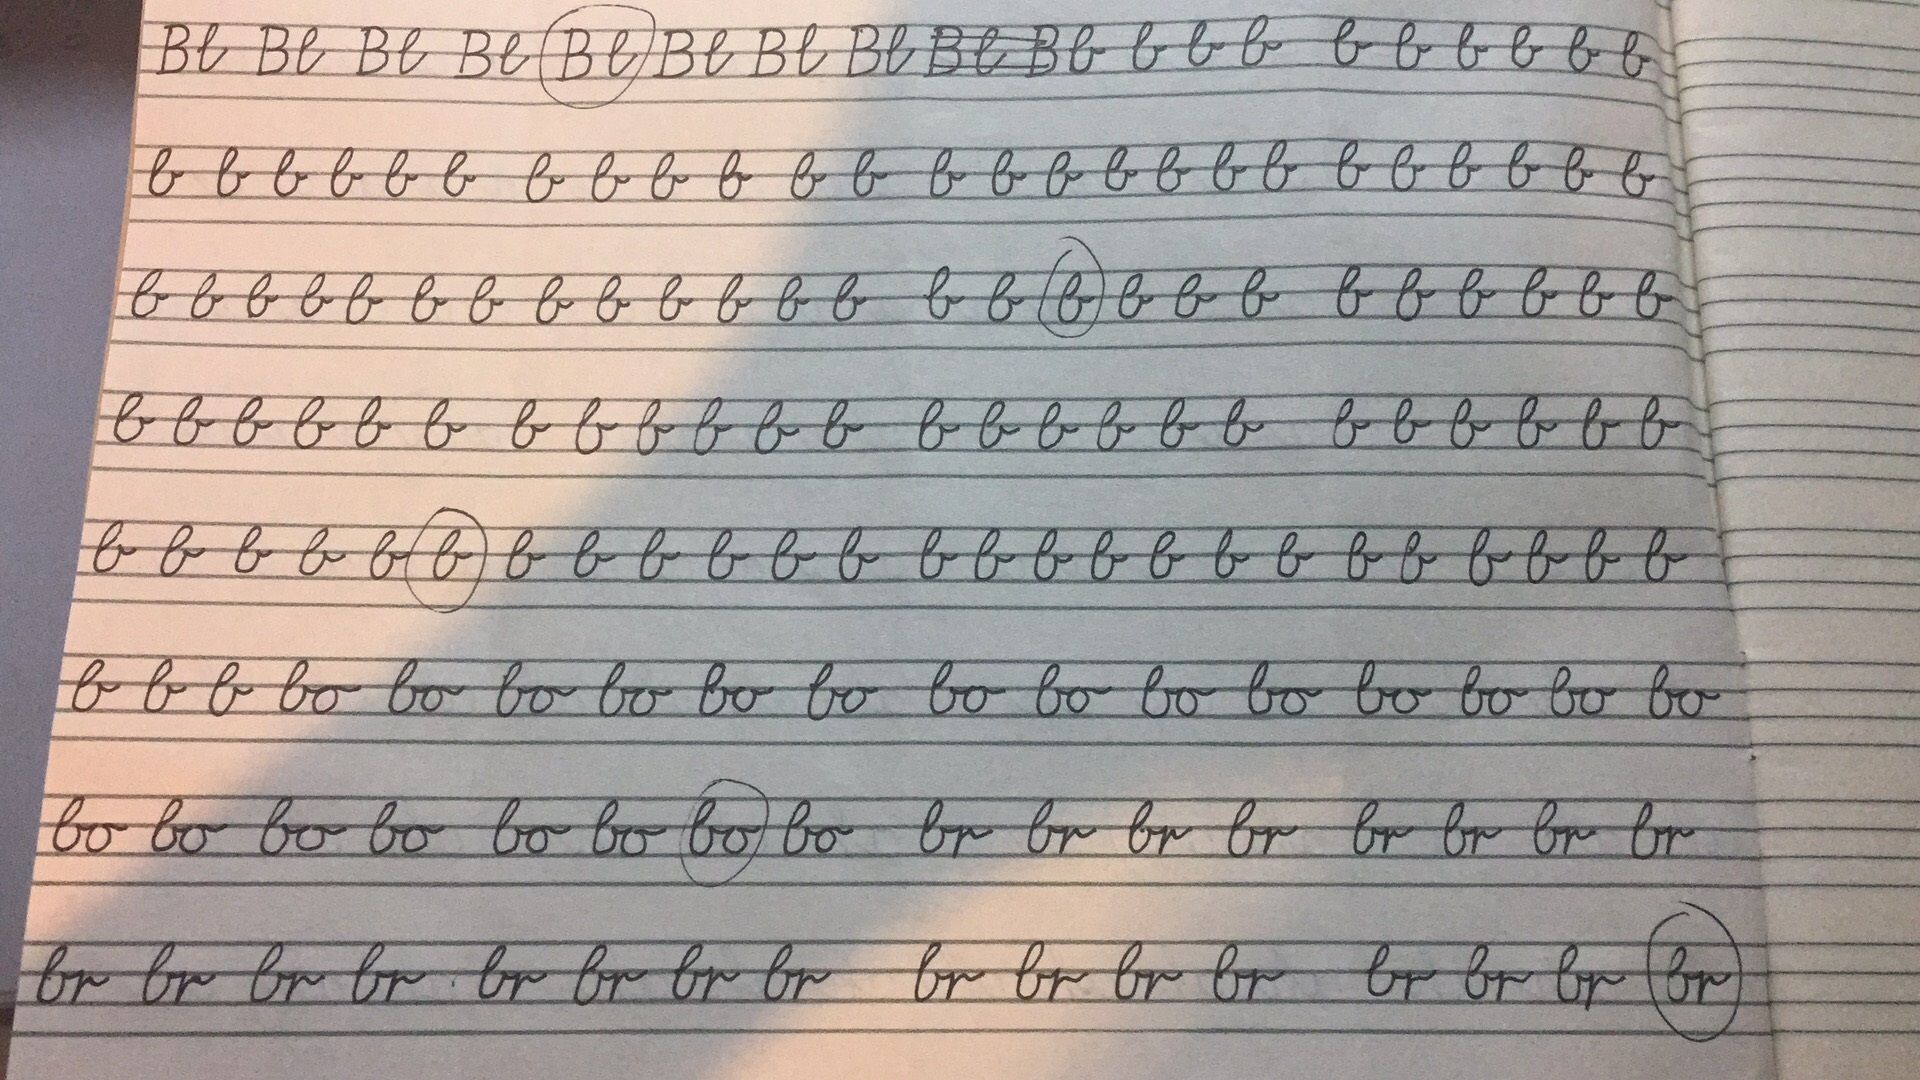 Bl Bl Bl Bl Bl Bl Bl Bl Bl Bb b b b b b b b b b
b b b b b b b b b b b b b b b b b b b b b b b b b
b b b b b b b b b b b b b b b b b b b b b b b b b
b b b b b b b b b b b b b b b b b b b b b b b b
b b b b b b b b b b b b b b b b b b b b b b b b b
b b b bo bo bo bo bo bo bo bo bo bo bo bo bo bo
bo bo bo bo bo bo bo bo br br br br br br br br
br br br br br br br br br br br br br br br br